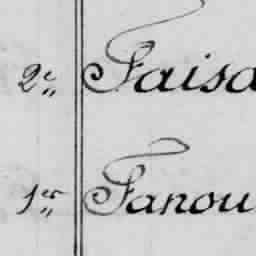 2e Faisa
1er Fanou